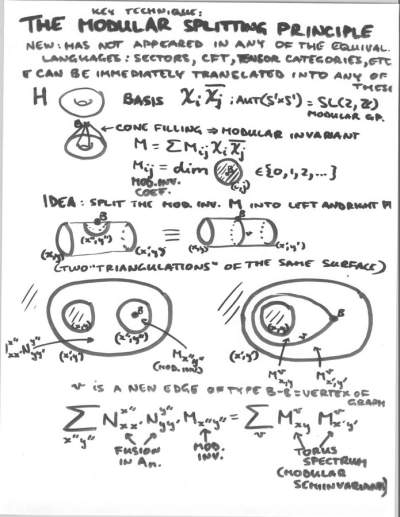 KEY TECHNIQUE:
THE MODULAR SPLITTING PRINCIPLE
NEW: HAS NOT APPEARED IN ANY OF THE EQUIVAL.
LANGUAGES: SECTORS, CFT, TENSOR CATEGORIES, ETC
IT CAN BE IMMEDIATELY TRANSLATED INTO ANY OF
THESE
H BASIS χi χ̄j ; AUT(S'×S') = SL(2,Z)
MODULAR GP.
B ← CONE FILLING ⇒ MODULAR INVARIANT
M = ΣMij χi χ̄j
Mij = dim (i,j) ∈{0,1,2,...}
MOD. INV.
COEF.
IDEA: SPLIT THE MOD. INV. M INTO LEFT AND RIGHT
B B
(x'',y'') ≡ v
(x,y) (x',y') (x,y) (x',y')
(TWO "TRIANGULATIONS" OF THE SAME SURFACE)
B B
(x,y) (x'',y'') (x,y) v
N^x''_xx' N^y''_yy' (x',y') M_x''y'' (x',y') M^v_xy M^v_x'y'
(MOD. INV.)
v IS A NEW EDGE OF TYPE B-B = VERTEX OF
GRAPH
Σ_x''y'' N^x''_xx' N^y''_yy' M_x''y'' = Σ_v M^v_xy M^v_x'y'
FUSION MOD. TORUS
IN An. INV. SPECTRUM
(MODULAR
SEMIINVARIANT)